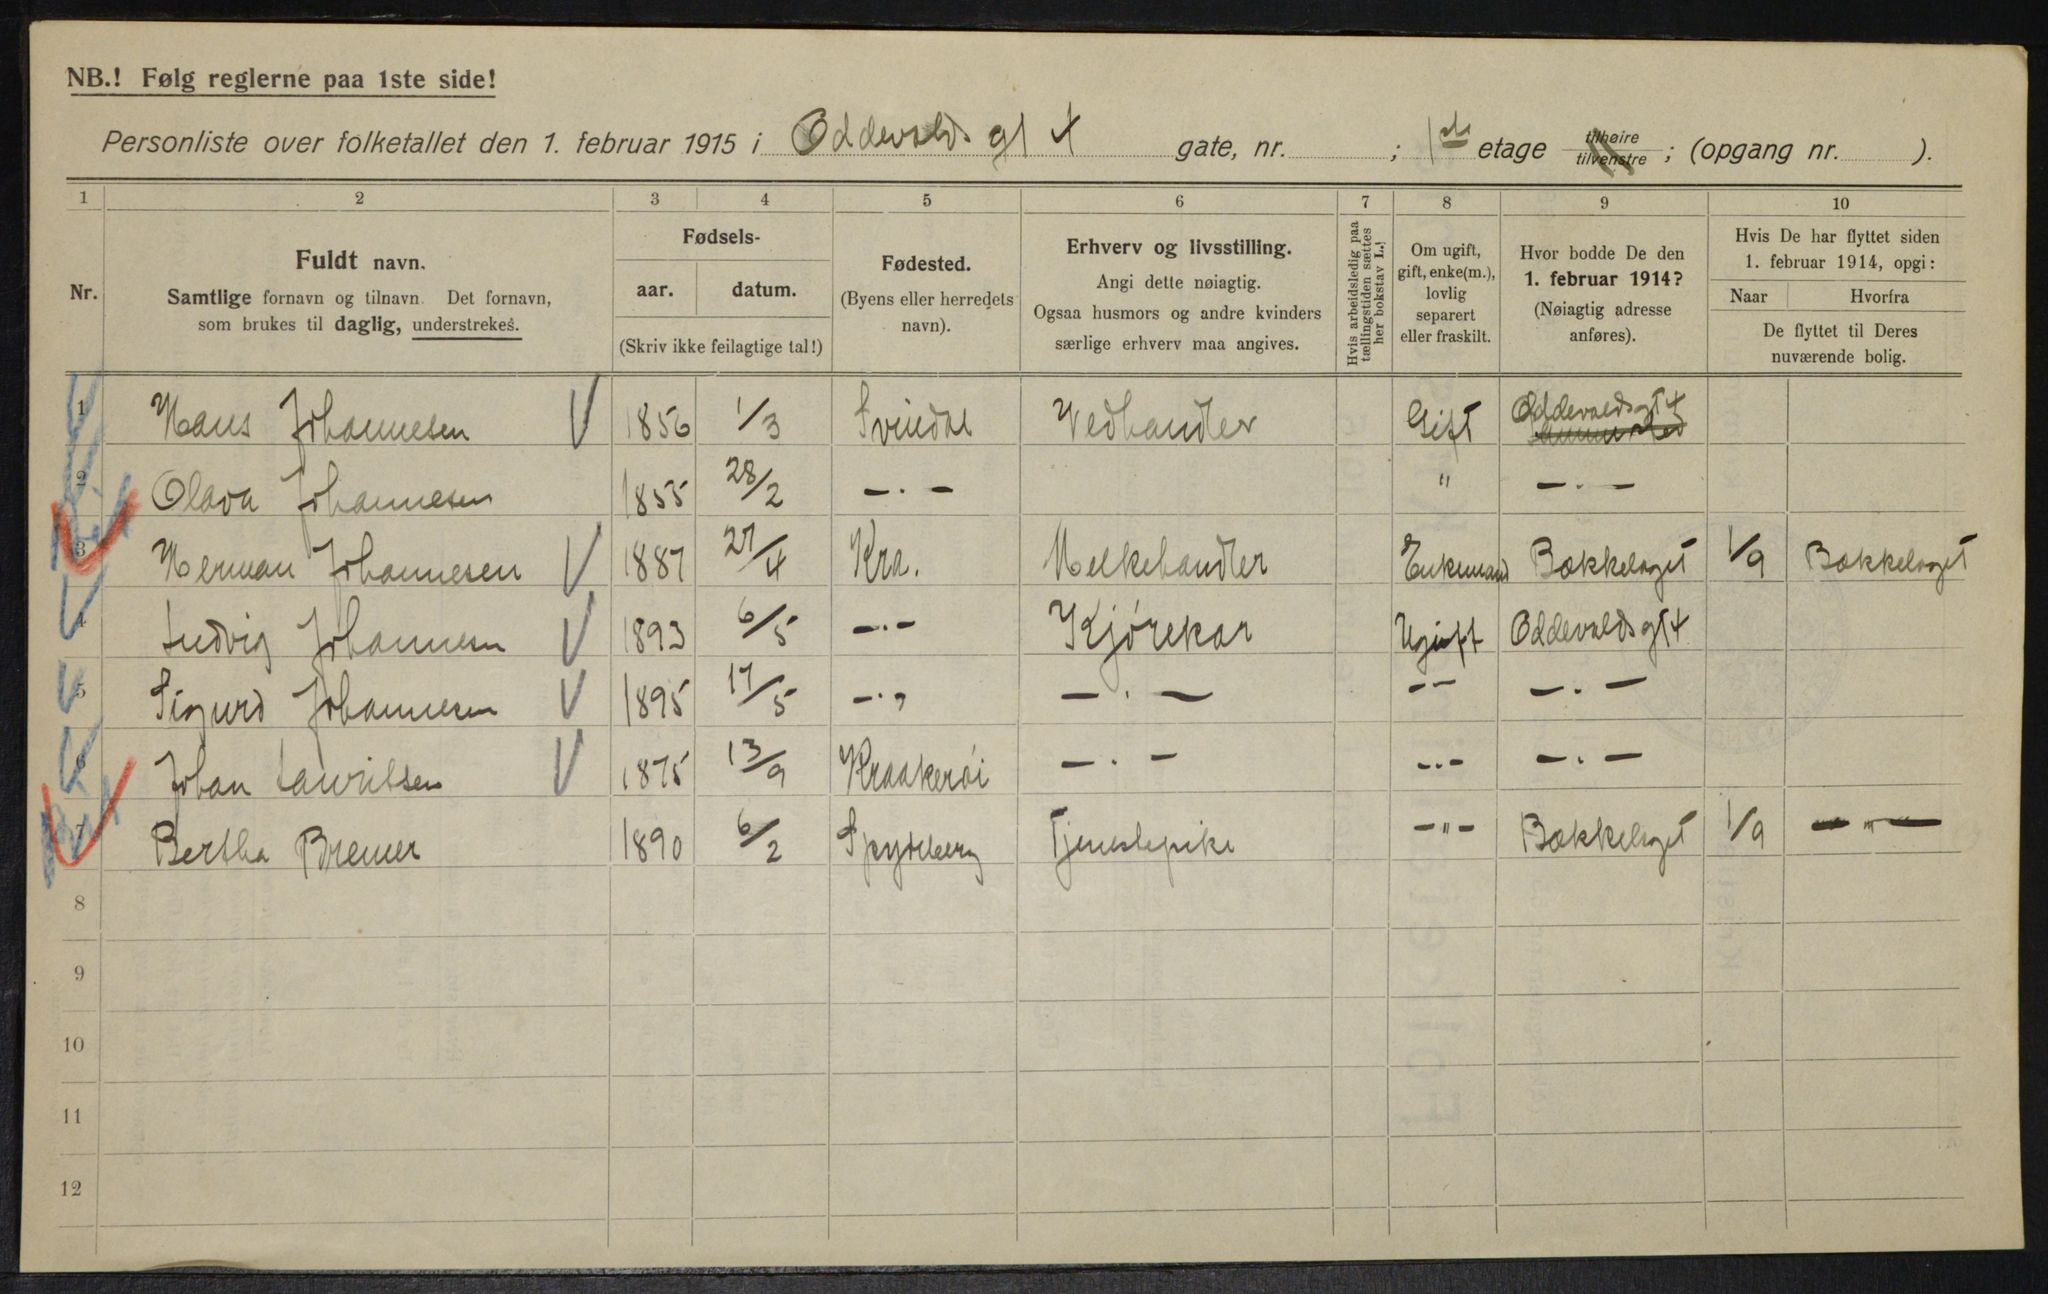 NB.! Følg reglerne paa 1ste side!
Personliste over folketallet den 1. februar 1915 i Oddevalds gt 4 gate, nr. ; 1ste etage tilhøire tilvenstre ; (opgang nr. ).
1 2 3 4 5 6 7 8 9 10
Nr.
Fuldt navn.
Samtlige fornavn og tilnavn. Det fornavn,
som brukes til daglig, understrekes.
Fødsels-
aar. datum.
(Skriv ikke feilagtige tal!)
Fødested.
(Byens eller herredets
navn).
Erhverv og livsstilling.
Angi dette nøiagtig.
Ogsaa husmors og andre kvinders
særlige erhverv maa angives.
Hvis arbeidsledig paa
tællingstiden sættes
her bokstav L.!
Om ugift,
gift, enke(m.),
lovlig
separert
eller fraskilt.
Hvor bodde De den
1. februar 1914?
(Nøiagtig adresse
anføres).
Hvis De har flyttet siden
1. februar 1914, opgi:
Naar Hvorfra
De flyttet til Deres
nuværende bolig.
1 Hans Johannesen 1856 1/3 Svindal Vedhandler Gift Oddevaldsgt 4
2 Olava Johannesen 1855 28/2 —.— " —.—
3 Herman Johannesen 1887 27/4 Kra. Melkehandler Enkemand Bækkelaget 1/9 Bækkelaget
4 Ludvig Johannesen 1893 6/5 —.— Kjørekar Ugift Oddevaldsgt 4
5 Sigurd Johannesen 1895 17/5 —.— —.— —.— —.—
6 Johan Lauritsen 1875 13/9 Kraakerøi —.— —.— —.—
7 Bertha Bremer 1890 6/2 Spydeberg Tjenestepike —"— Bækkelaget 1/9 —"—
8
9
10
11
12